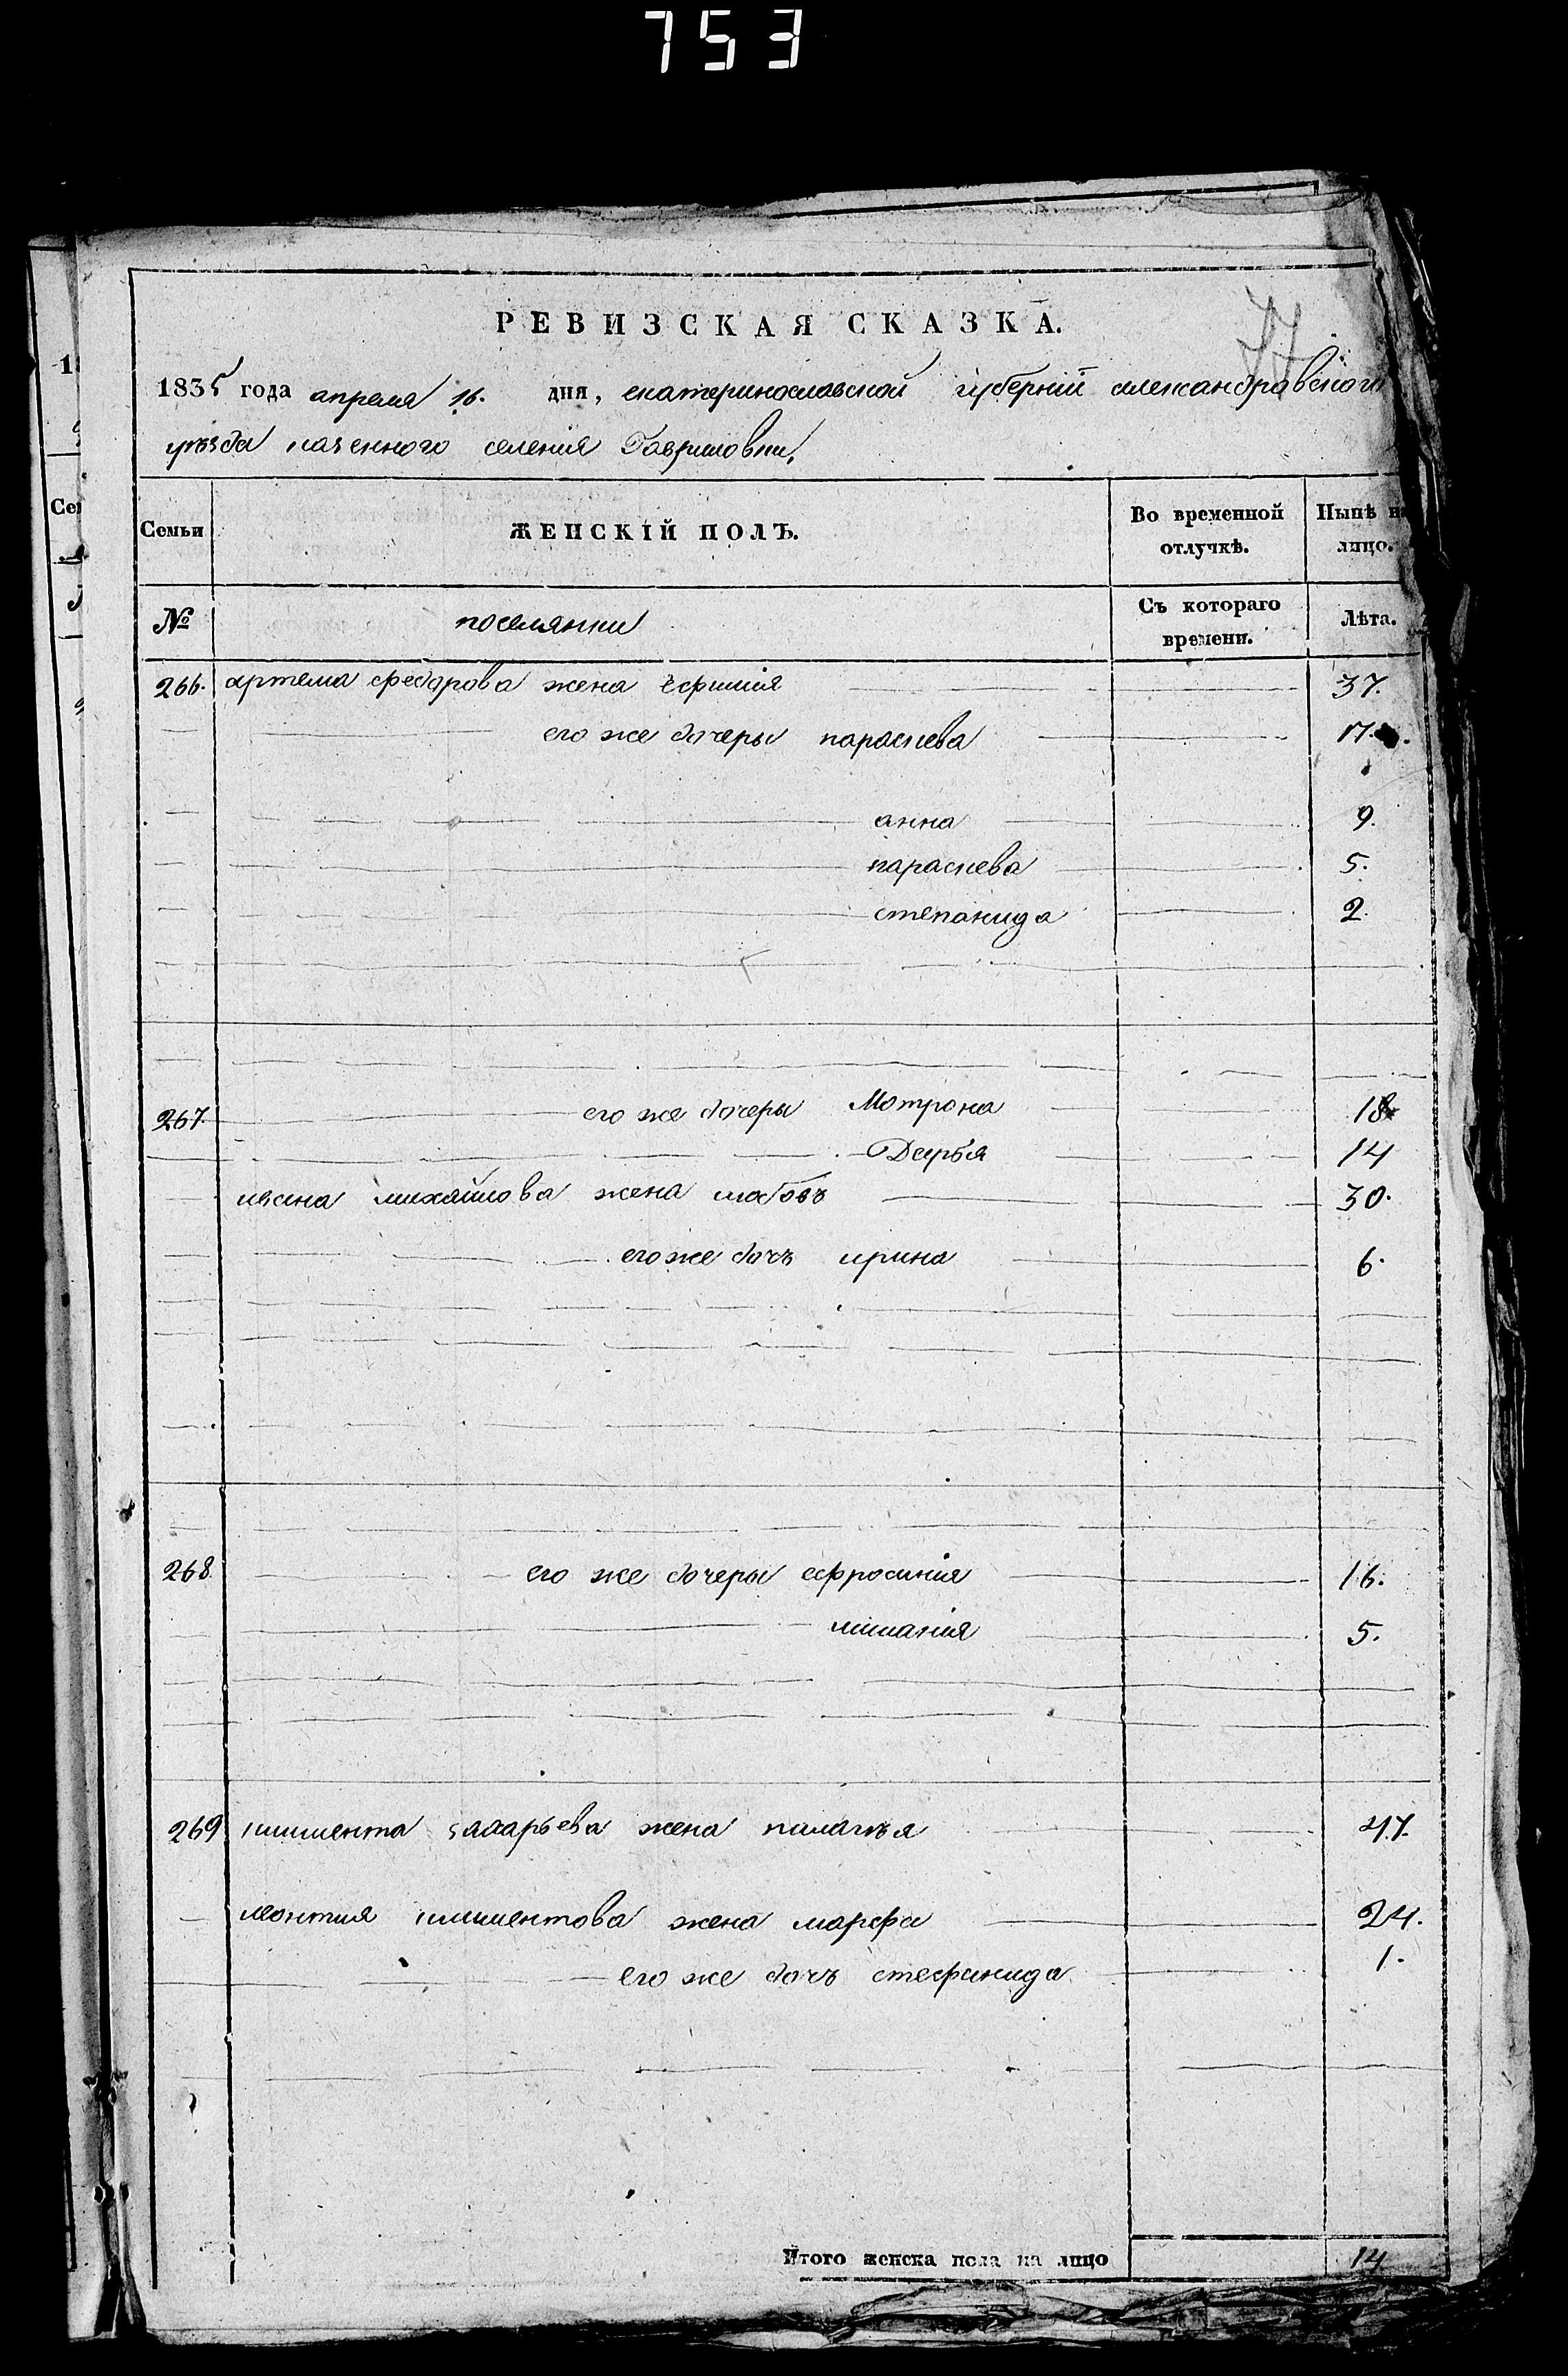 753
77
РЕВИЗСКАЯ СКАЗКА.
1835 года апреля 16. дня, екатеринославской губерній александравского
уѣзда казенного селения Гавриловки,
Семьи
ЖЕНСКІЙ ПОЛЪ.
Во временной отлучкѣ.
Нынѣ на лицо.
№
поселянки
Съ котораго времени.
Лѣта.
266. артема федарова жена 37.
его же дочеры параскева 17.
анна 9.
параскева 5.
степанида 2.
267. его же дочеры Мотрона 18
Дарья 14
ивана михайлова жена любовъ 30.
его же дочъ ирина 6.
268. его же дочеры ефросиния 16.
5.
269 климента захарьева жена палагъя 47.
леонтия климентова жена марфа 24.
его же дочъ стефанида 1.
Итого женска пола на лицо 14